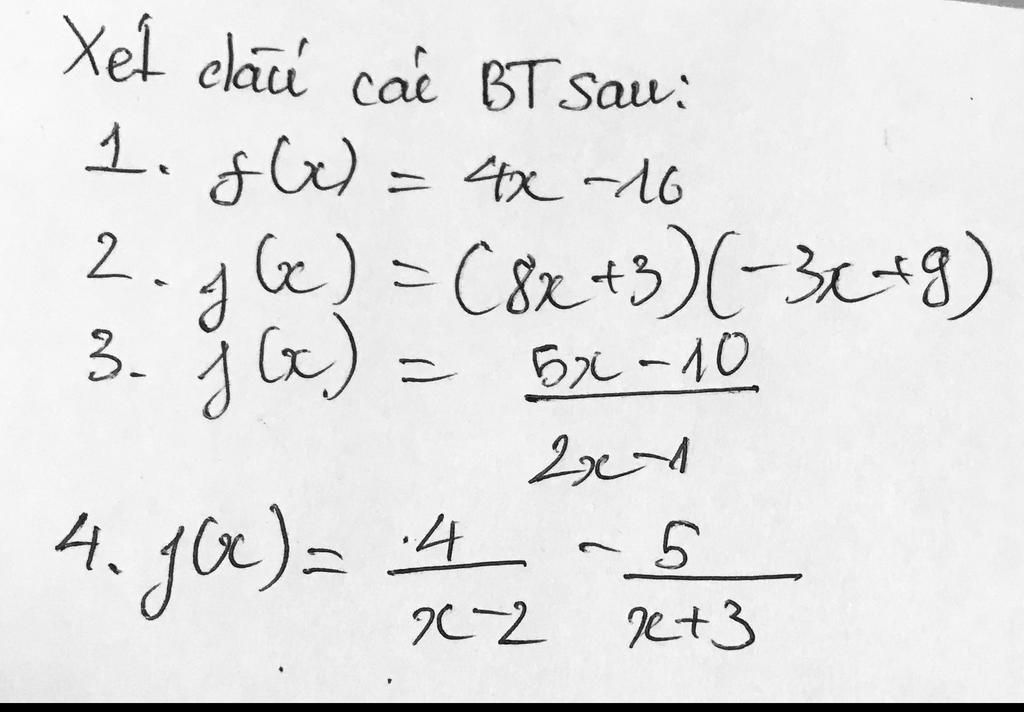 Xét dấu các BT sau:
1. f(x) = 4x - 16
2. f(x) = (8x + 3)(-3x + 9)
3. f(x) = \frac{5x - 10}{2x - 1}
4. f(x) = \frac{4}{x - 2} - \frac{5}{x + 3}